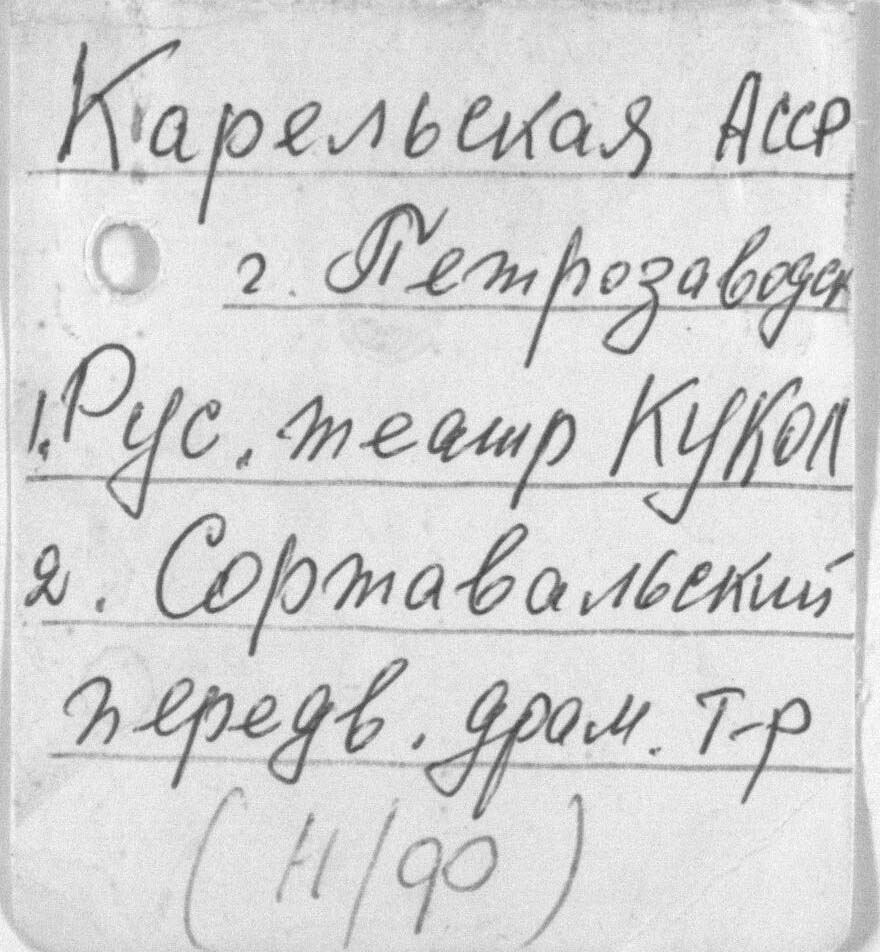 Карельская АССР
г. Петрозаводск
1. Рус. театр КУКОЛ
2. Сортавальский
передв. драм. т-р
(Н/ф)